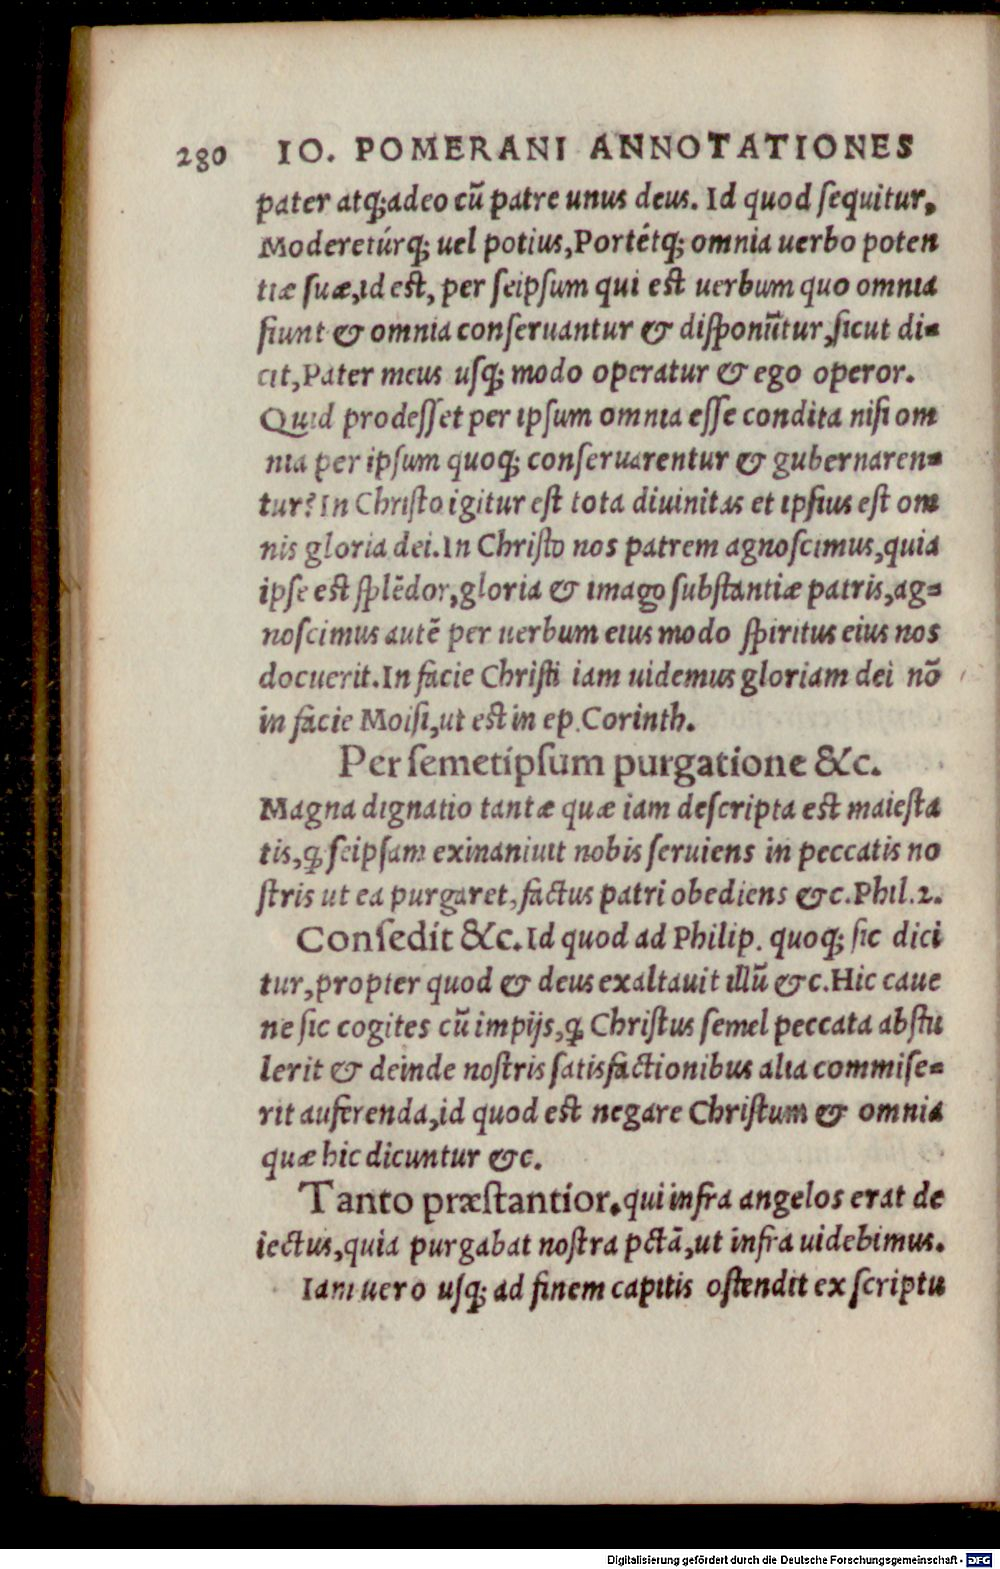 280 IO. POMERANI ANNOTATIONES
pater atq;adeo cũ patre unus deus. Id quod ſequitur,
Moderetúrq; uel potius,Portétq; omnia uerbo poten
tiæ ſuæ,id eſt, per ſeipſum qui eſt uerbum quo omnia
fiunt & omnia conſeruantur & diſponũtur,ſicut di-
cit,Pater meus uſq; modo operatur & ego operor.
Quid prodeſſet per ipſum omnia eſſe condita niſi om
nia per ipſum quoq; conſeruarentur & gubernaren-
tur? In Chriſto igitur eſt tota diuinitas et ipſius eſt om
nis gloria dei.In Chriſto nos patrem agnoſcimus,quia
ipſe eſt ſplẽdor,gloria & imago ſubſtantiæ patris,ag-
noſcimus autẽ per uerbum eius modo ſpiritus eius nos
docuerit.In facie Chriſti iam uidemus gloriam dei nõ
in facie Moiſi,ut eſt in ep.Corinth.
Per ſemetipſum purgatione &c.
Magna dignatio tantæ quæ iam deſcripta eſt maieſta
tis,ꝙ ſeipſam exinaniuit nobis ſeruiens in peccatis no
ſtris ut ea purgaret,factus patri obediens &c.Phil.2.
Conſedit &c.Id quod ad Philip. quoq; ſic dici
tur,propter quod & deus exaltauit illũ &c.Hic caue
ne ſic cogites cũ impijs,ꝙ Chriſtus ſemel peccata abſtu
lerit & deinde noſtris ſatisfactionibus alia commiſe-
rit auferenda,id quod eſt negare Chriſtum & omnia
quæ hic dicuntur &c.
Tanto præſtantior.qui infra angelos erat de
iectus,quia purgabat noſtra pctã,ut infra uidebimus.
Iam uero uſq; ad finem capitis oſtendit ex ſcriptu
Digitalisierung gefördert durch die Deutsche Forschungsgemeinschaft - DFG